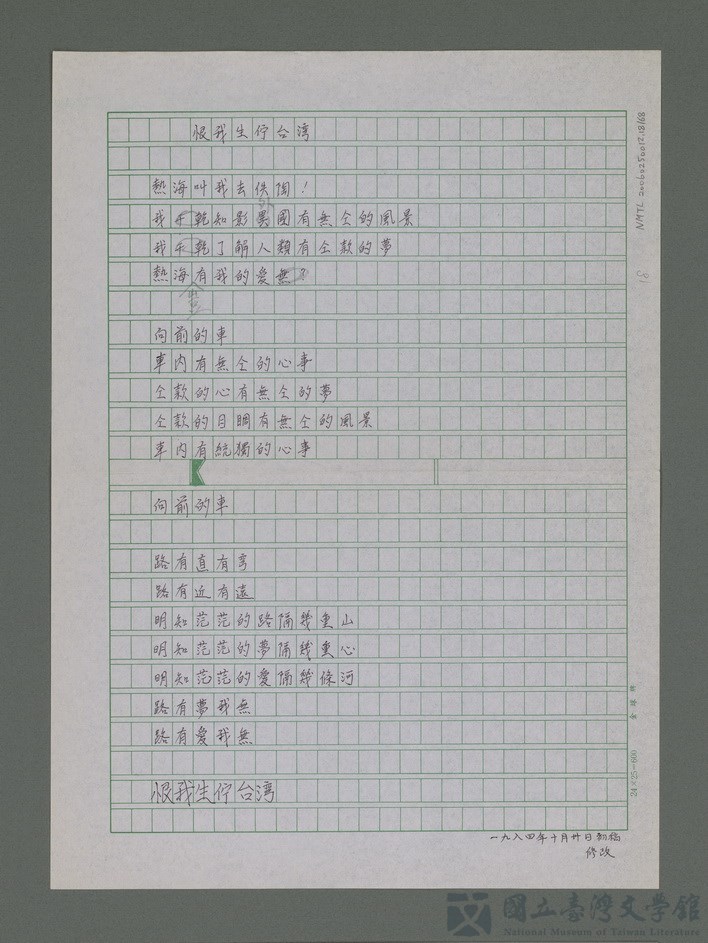 恨我生佇台湾
熱海叫我去佚陶！
我 乾知影 國有無仝的風景
外
我 乾了解人類有仝款的夢
熱海有我的愛無？
向前的車
車内有無仝的心事
仝款的心有無仝的夢
仝款的目睭有無仝的風景
車内有統獨的心事
向前的車
路有直有弯
路有近有遠
明知茫茫的路隔幾重山
明知茫茫的夢隔幾重心
明知茫茫的愛隔幾條河
路有夢我無
路有愛我無
恨我生佇台湾
一九八四年十月廿日初稿
修改
NMTL 20060250012.18/68
18
24×25=600
國立臺灣文學館
National Museum of Taiwan Literature